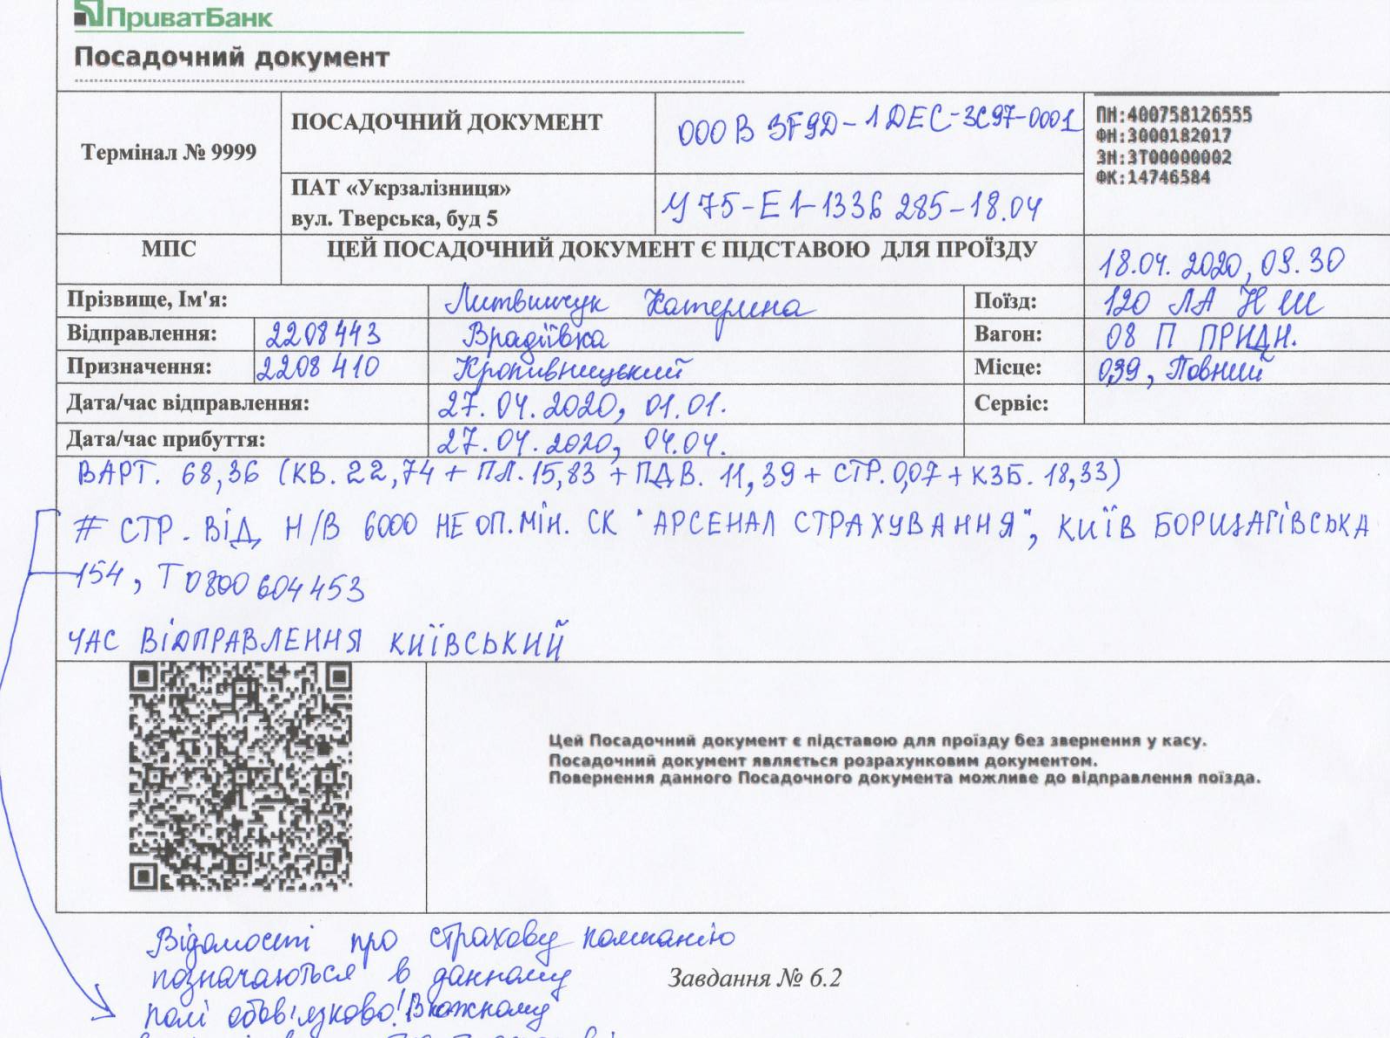 ПриватБанк
Посадочний документ
Термінал № 9999
ПОСАДОЧНИЙ ДОКУМЕНТ
000B 3F9D-1DEC-3C97-0001
ПН:400758126555
ФН:3000182017
ЗН:3Т00000002
ФК:14746584
ПАТ «Укрзалізниця»
вул. Тверська, буд 5
У 75-Е1-1336 285-18.04
МПС ЦЕЙ ПОСАДОЧНИЙ ДОКУМЕНТ Є ПІДСТАВОЮ ДЛЯ ПРОЇЗДУ 18.04. 2020, 09.30
Прізвище, Ім'я: Литвинчук Катерина Поїзд: 120 ЛА Н Ш
Відправлення: 2208443 Врадіївка Вагон: 08 П ПРИДН.
Призначення: 2208 410 Кропивницький Місце: 039, Повний
Дата/час відправлення: 27. 04. 2020, 01.01. Сервіс:
Дата/час прибуття: 27. 04. 2020, 04.04.
ВАРТ. 68,36 (КВ. 22,74 + ПЛ. 15,83 + ПДВ. 11,39 + СТР. 0,07 + КЗБ. 18,33)
# СТР. ВІД Н/В 6000 НЕ ОП. МІН. СК "АРСЕНАЛ СТРАХУВАННЯ", КИЇВ БОРЩАГІВСЬКА
154, Т 0800 604453
ЧАС ВІДПРАВЛЕННЯ КИЇВСЬКИЙ
Цей Посадочний документ є підставою для проїзду без звернення у касу.
Посадочний документ являється розрахунковим документом.
Повернення данного Посадочного документа можливе до відправлення поїзда.
Відомості про страхову компанію
позначаються в данному
полі обов'язково! В кожному
Завдання № 6.2